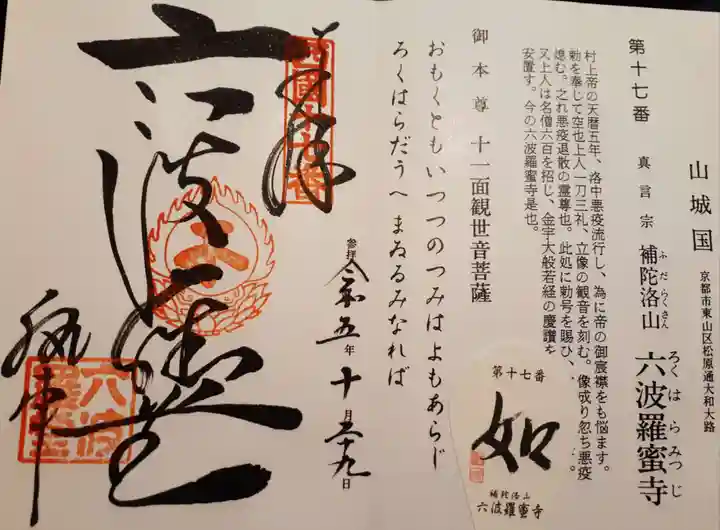 山城国
京都市東山区松原通大和大路
第十七番
真言宗
補陀洛山
ふだらくさん
六波羅蜜寺
ろくはらみつじ
村上帝の天暦五年、洛中悪疫流行し、為に帝の御宸襟をも悩ます。
勅を奉じて空也上人一刀三礼、立像の観音を刻む。像成り忽ち悪疫
熄む。之れ悪疫退散の霊尊也。此処に勅号を賜ひ、
又上人は名僧六百を招じ、金字大般若経の慶讃を
安置す。今の六波羅蜜寺是也。
御本尊 十一面観世音菩薩
おもくとも いつつのつみは よもあらじ
ろくはらだうへ まゐるみなれば
第十七番
如
補陀洛山
六波羅蜜寺
参拝
令和五年十月二十九日
奉拝
西國十七番
六波羅蜜寺